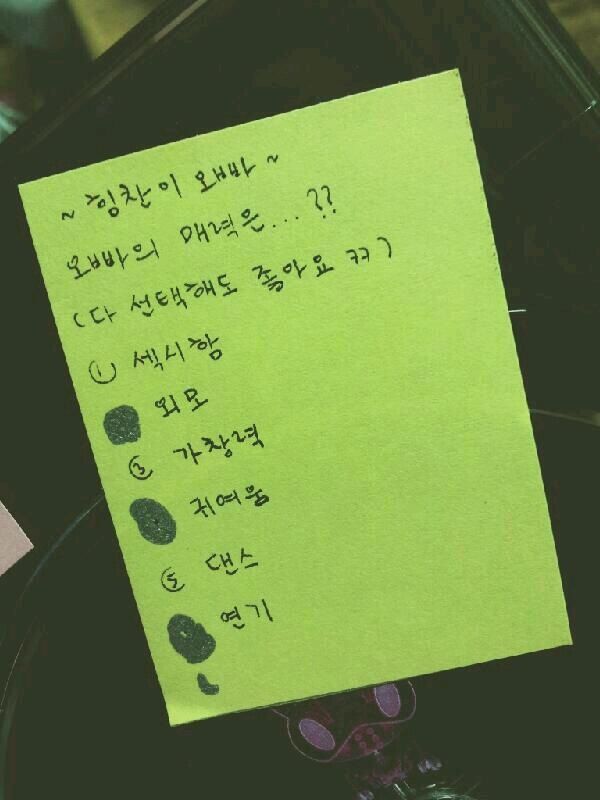 ~ 힘찬이 오빠 ~
오빠의 매력은...??
(다 선택해도 좋아요 ㅋㅋ)
① 섹시함
외모
③ 가창력
귀여움
⑤ 댄스
연기